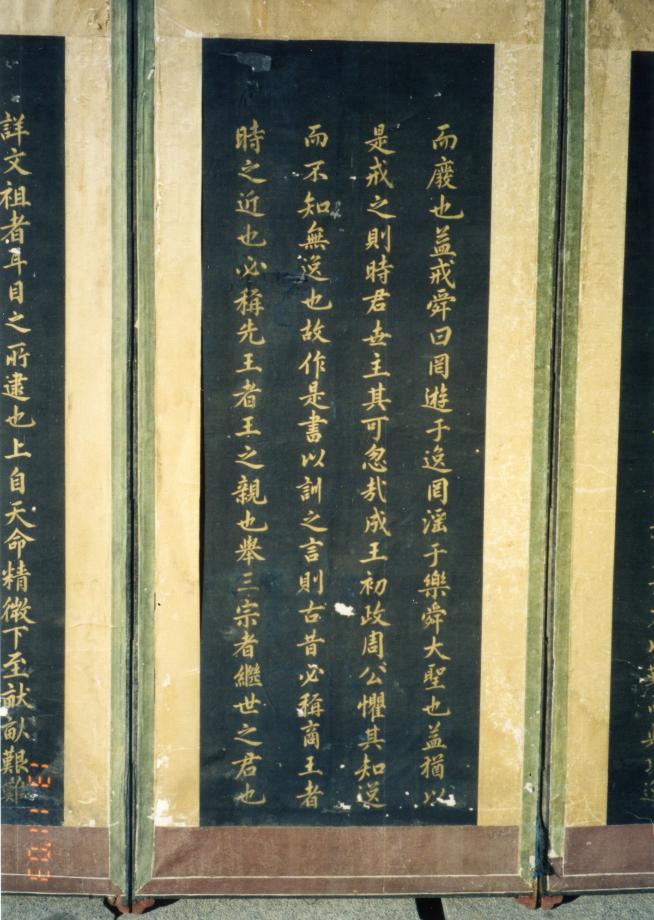 而廢也益戒舜曰罔遊于逸罔淫于樂舜大聖也益猶以
是戒之則時君世主其可忽哉成王初政周公懼其知逸
而不知無逸也故作是書以訓之言則古昔必稱商王者
時之近也必稱先王者王之親也舉三宗者繼世之君也
詳文祖者耳目之所逮也上自天命精微下至畎畝艱難